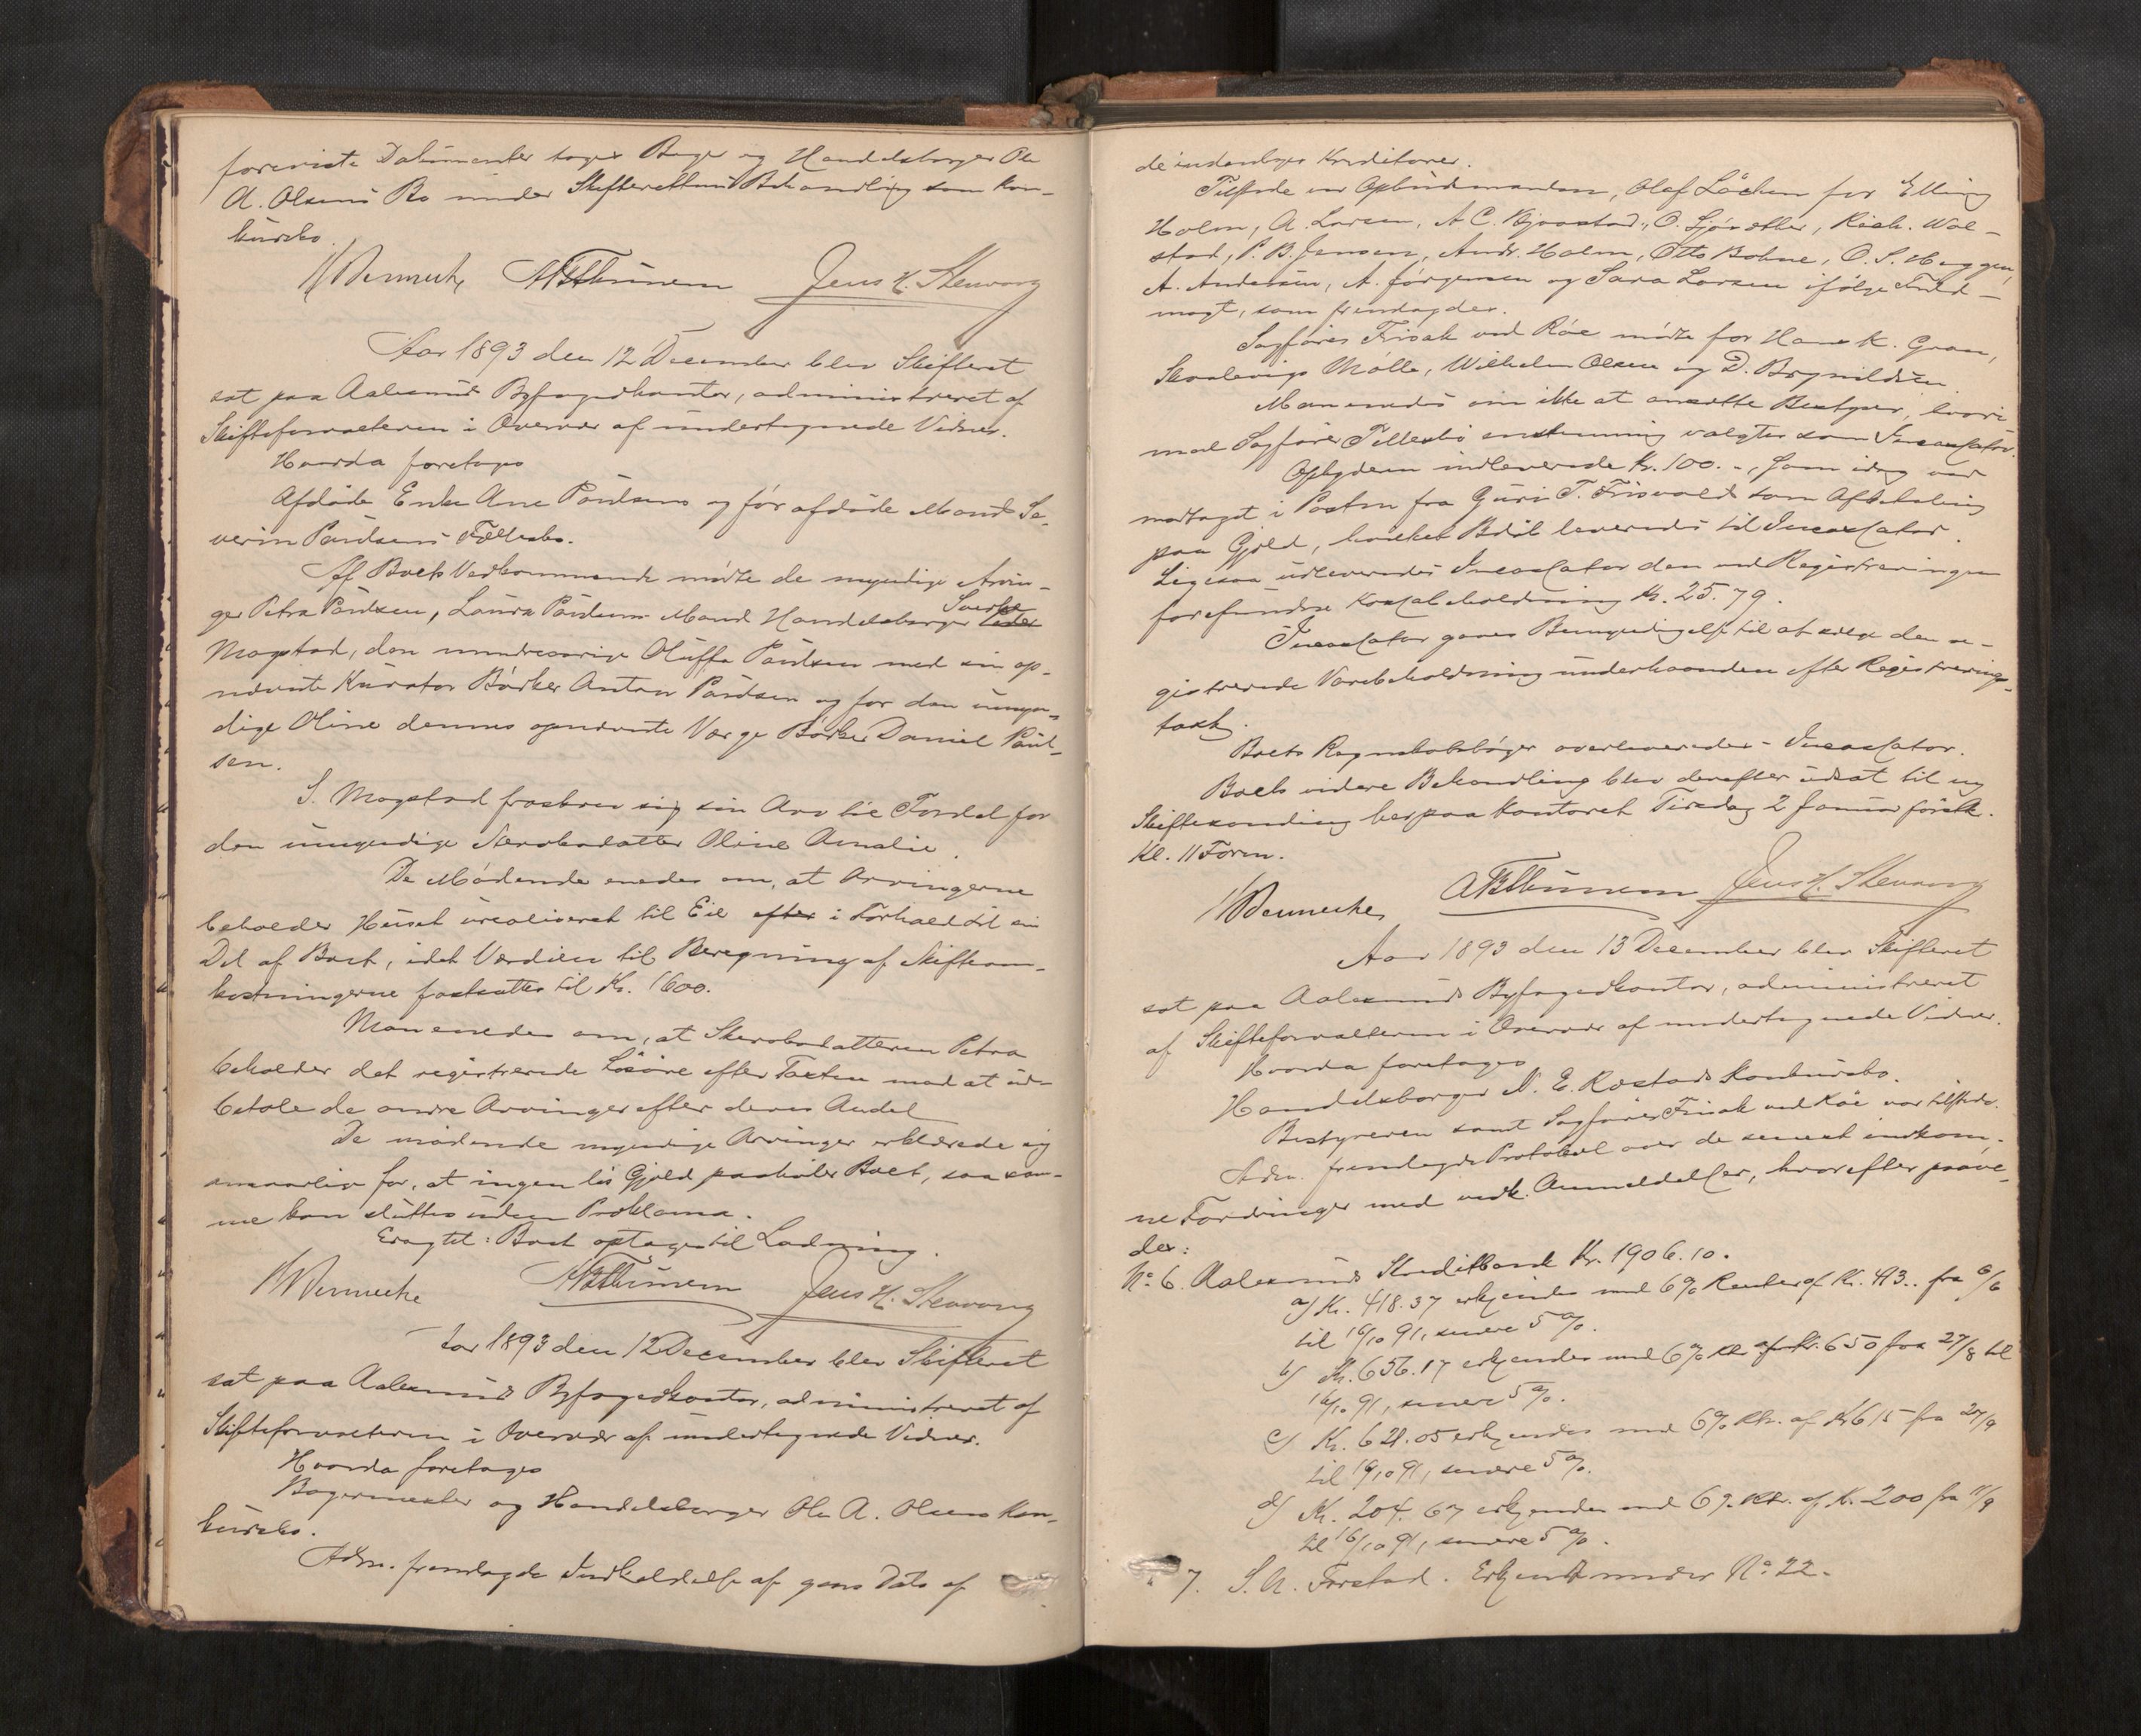 foreviste Dokumenter toges Bager og Handelsborger Ole
A. Olsens Bo under Skifterettens Behandling som Kon-
kursbo.
Jens H. Stenvaag
Aar 1893 den 12 December blev Skifteret
sat paa Aalesunds Byfogedkontor, administreret af
Skifteforvalteren i Overvær af undertegnede Vidner.
Hvorda foretoges
Afdøde Enke Ane Poulsens og før afdøde Mand Se-
verin Poulsens Fællesbo.
Af Boets Vedkommende mødte de myndige Arvin-
ger Petra Poulsen, Laura Poulsens Mand Handelsborger Sverke
Mogstad, den mindreaarige Oluffa Poulsen med sin op-
nævnte Kurator Bødker Anton Poulsen og for den umyn-
dige Oline dennes opnævnte Værge Bødker Daniel Poul-
sen.
S. Mogstad fraskrev sig sin Arv til Fordel for
den umyndige Skrobodatter Oline Amalie.
De Mødende enedes om, at Arvingerne
beholder Huset urealiseret til Eie efter i Forhold til sin
Del af Boet, idet Værdien til Beregning af Skifteom-
kostningerne fastsættes til Kr. 1600.
Man enedes om, at Datteren Petra
beholder det registrerede Løsøre efter Taxten mod at ud-
betale de andre Arvinger efter deres Andel
De mødende myndige Arvinger erklærede sig
ansvarlige for, at ingen løs Gjeld paahviler Boet, saa sam-
me kan sluttes uden Proklama.
Eragtet: Boet optages til Lodning.
Jens H. Stenvaag
Aar 1893 den 12 December blev Skifteret
sat paa Aalesunds Byfogedkontor, administreret af
Skifteforvalteren i Overvær af undertegnede Vidner.
Hvorda foretoges
Bagermester og Handelsborger Ole A. Olsens Kon-
kursbo.
Adm. fremlagde Indkaldelse af gaars Dato af
de indenbyes Kreditorer.
Tilstede var Opbudsmanden, Olaf Løken for Elling
Holm, A. Larsen, A C. Bjorstad, O. Sjøvoller, Rich. Wol-
stad, P. B. Jensen, Andr. Holm, Otto Bohne, O. S. Haggen,
A. Andersen, A. Jørgensen og Sara Larsen ifølge Fuld-
magt, som fremlagdes.
Sagfører Frisak ved Røe mødte for Hans K. Gran,
Skaalevigs Mølle, Wilhelm Olsen og D. Brynildsen
Man enedes om ikke at ansætte Bestyrer, hvori-
mod Sagfører Tillesbø enstemmig valgtes som Incassator.
Opbyderen indleverede Kr. 100.-, som idag var
modtaget i Posten fra Guri T. Frisvold som Afbetaling
paa Gjeld, hvilket Beløb leveredes til Incassator.
Ligesaa udleveredes Incassator den ved Registreringen
forefundne Kassabeholdning Kr. 25.79.
Incassator gaves Bemyndigelse til at sælge den re-
gistrerede Varebeholdning underhaanden efter Registrerings-
taxt.
Boets Regnskabsbøger overleveredes Incassator.
Boets videre Behandling blev derefter udsat til ny
Skiftesamling her paa Kontoret Tirsdag 2 Januar førstk.
Kl. 11 Form.
Jens H. Stenvaag
Aar 1893 den 13 December blev Skifteret
sat paa Aalesunds Byfogedkontor, administreret
af Skifteforvalteren i Overvær af undertegnede Vidner.
Hvorda foretoges
Handelsborger N. E. Rostads Konkursbo.
Bestyreren samt Sagfører Frisak ved Røe var tilstede.
Adm. fremlagde Protokol over de senest indkom-
ne Fordringer med vedk. Anmeldelser, hvorefter prøve-
des:
No. 6. Aalesunds Kreditbank Kr. 1906.10.
a) Kr. 418.37 erkjendes med 6% Renter af Kr. 413.. fra 6/6
til 16/10 91, senere 5%.
b) Kr. 656.17 erkjendes med 6% Rtr af Kr. 650 fra 27/8 til
16/10 91, senere 5%.
c) Kr. 621.05 erkjendes med 6% Rtr. af Kr 615 fra 27/9
til 16/10 91, senere 5%.
d) Kr. 204.67 erkjendes med 6% Rtr. af Kr. 200 fra 11/9
til 16/10 91, senere 5%.
7. S. A. Forstad. Erkjendt under No. 22.